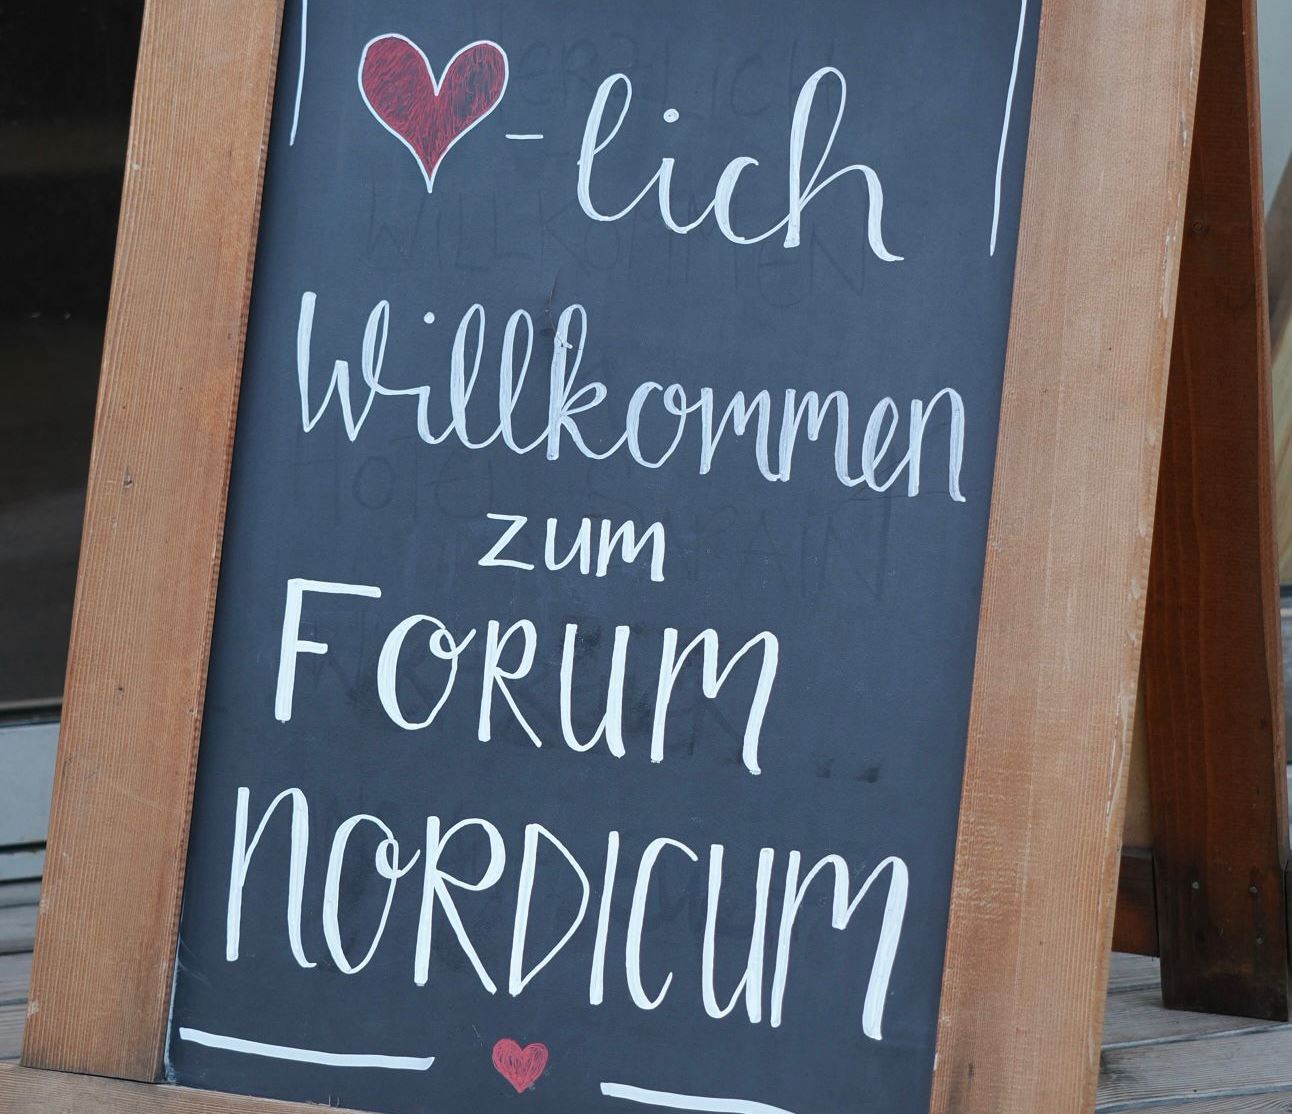 ❤-lich
Willkommen
zum
FORUM
NORDICUM